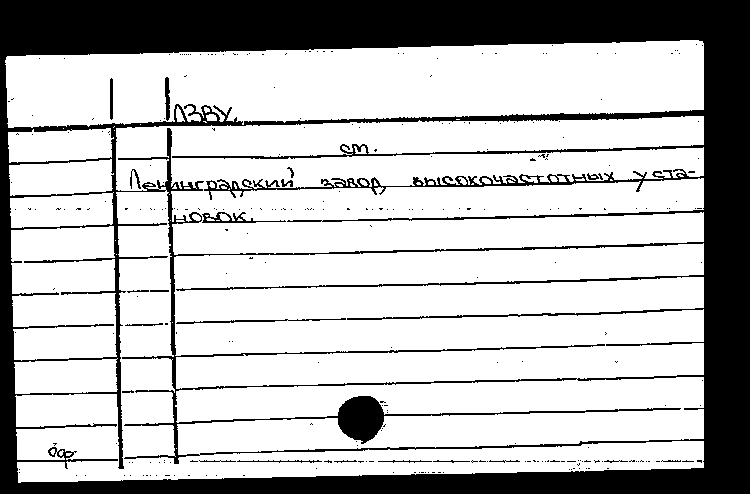 ЛЗВУ.
см.
Ленинградский завод высокочастотных уста-
новок.